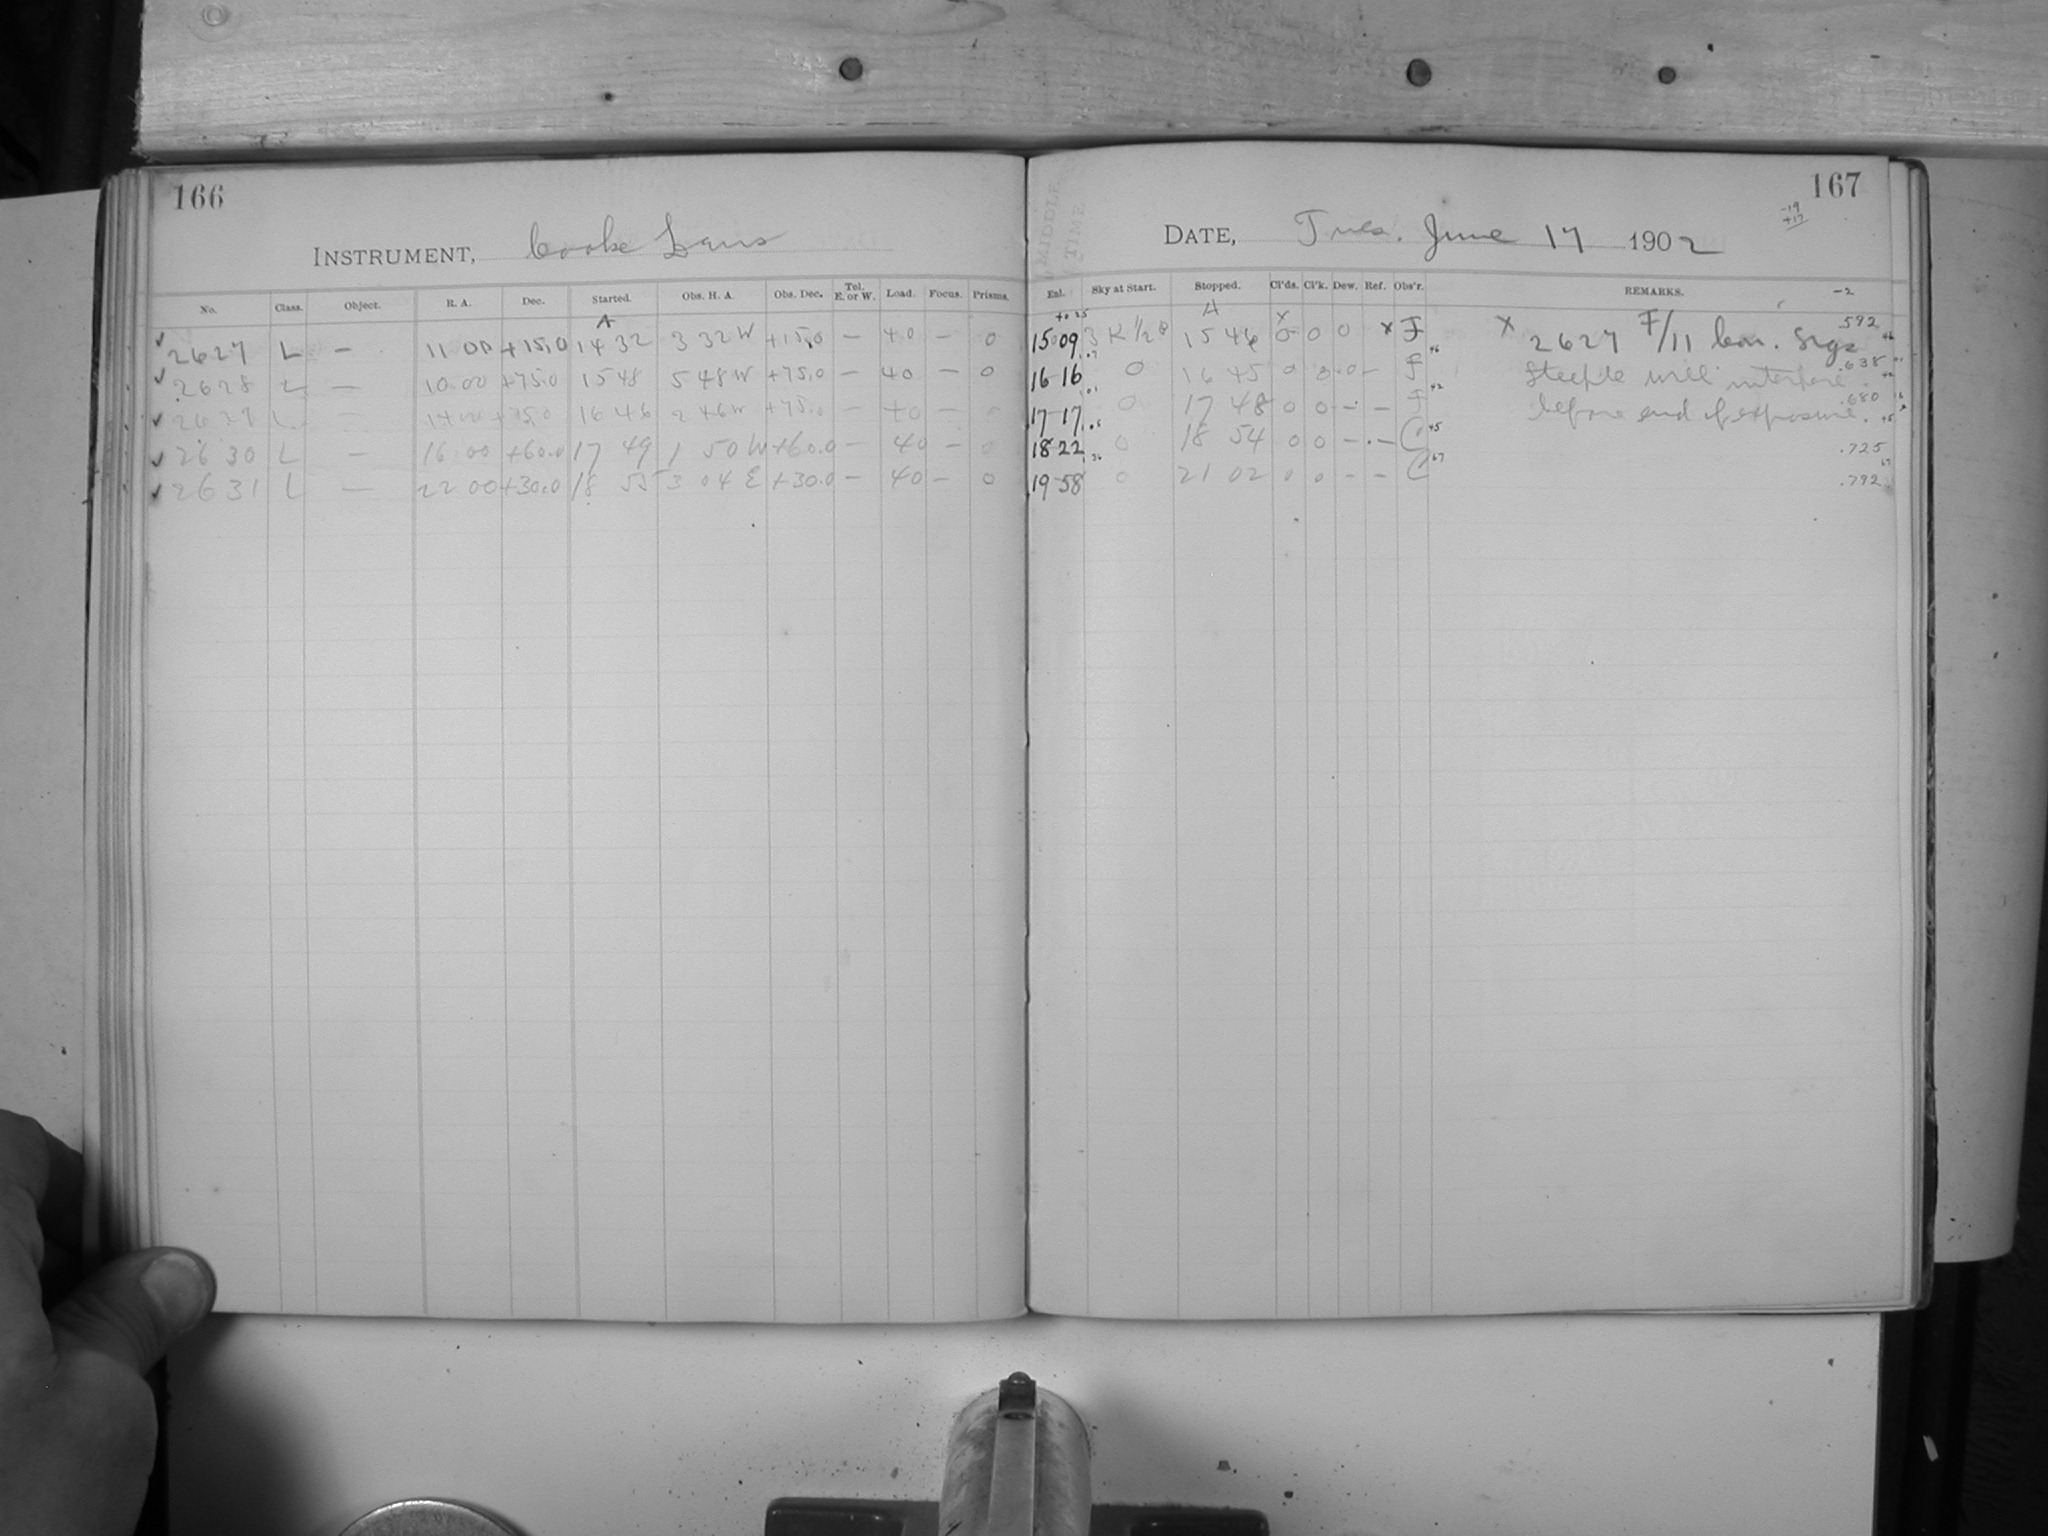 166
INSTRUMENT, Cooke Lens
No. Class. Object. R. A. Dec. Started. Obs. H. A. Obs. Dec. Tel. E. or W. Load. Focus. Prisms.
A
✓ 2627 L — 11 00 +15.0 14 32 3 32 W +15.0 — 40 — 0
✓ 2628 L — 10 00 +75.0 15 48 5 48 W +75.0 — 40 — 0
✓ 2629 L — 14 00 +75.0 16 46 2 46 W +75.0 — 40 — 0
✓ 2630 L — 16 00 +60.0 17 49 1 50 W +60.0 — 40 — 0
✓ 2631 L — 22 00 +30.0 18 55 3 04 E +30.0 — 40 — 0
167
-19
+17
DATE, Tues. June 17 1902
MIDDLE TIME
Enl. Sky at Start. Stopped. Cl'ds. Cl'k. Dew. Ref. Obs'r. REMARKS. -2
A x
15 09 3 K 1/2 15 46 0 0 0 x F x 2627 F/11 .592
16 16 0 16 45 0 0 0 — F 46 Steeple will interfere .638
17 17 0 17 48 0 0 — — F 42 before end of exposure. .680
18 22 0 18 54 0 0 — — C 45 .725
19 58 0 21 02 0 0 — — C 67 .792